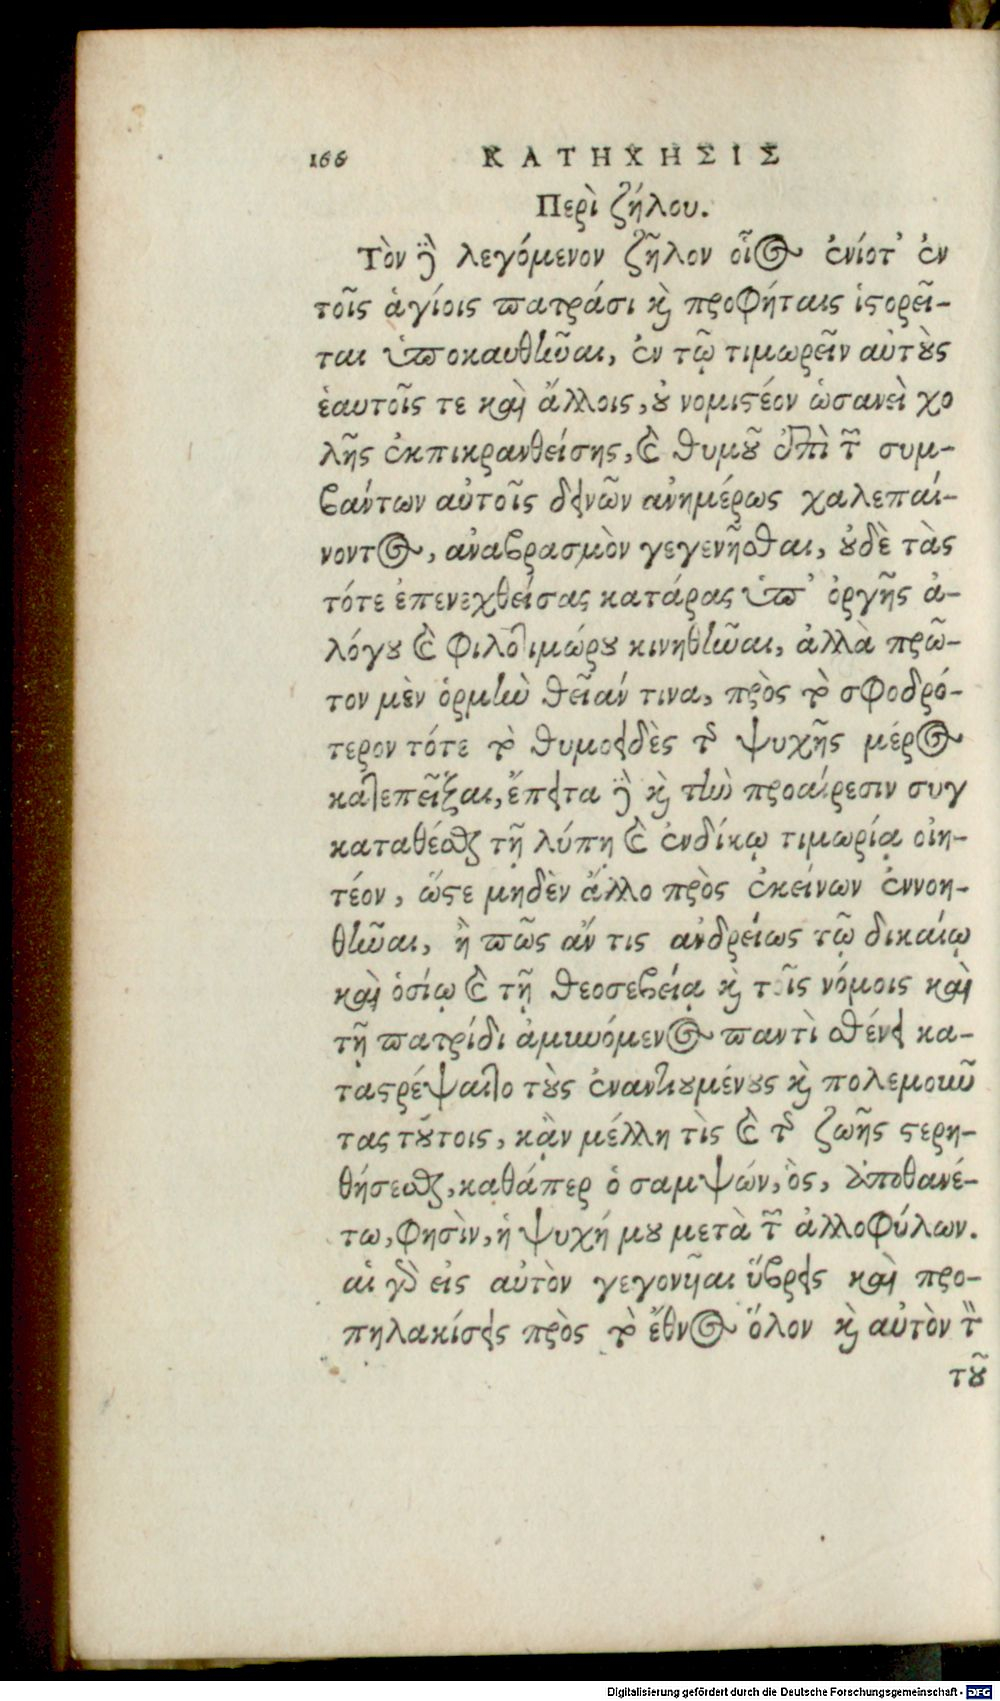 166 ΚΑΤΗΧΗΣΙΣ
Περὶ ζήλου.
Τὸν δὲ λεγόμενον ζῆλον οἷος ἐνίοτ' ἐν
τοῖς ἁγίοις πατράσι καὶ προφήταις ἱστορεῖ-
ται ὑποκαυθῆναι, ἐν τῷ τιμωρεῖν αὐτοὺς
ἑαυτοῖς τε καὶ ἄλλοις, οὐ νομιστέον ὡσανεὶ χο
λῆς ἐκπικρανθείσης, καὶ θυμοῦ ἐπὶ τῶν συμ-
βάντων αὐτοῖς δεινῶν ἀνημέρως χαλεπαί-
νοντος, ἀναβρασμὸν γεγενῆσθαι, οὐδὲ τὰς
τότε ἐπενεχθείσας κατάρας ὑπ' ὀργῆς ἀ-
λόγου καὶ φιλοτιμώρου κινηθῆναι, ἀλλὰ πρῶ-
τον μὲν ὁρμὴν θεῖάν τινα, πρὸς τὸ σφοδρό-
τερον τότε τὸ θυμοειδὲς τῆς ψυχῆς μέρος
κατεπεῖξαι, ἔπειτα δὲ καὶ τὴν προαίρεσιν συγ
καταθέσθαι τῇ λύπῃ καὶ ἐνδίκῳ τιμωρίᾳ οἰη-
τέον, ὥστε μηδὲν ἄλλο πρὸς ἐκείνων ἐννοη-
θῆναι, ἢ πῶς ἄν τις ἀνδρείως τῷ δικαίῳ
καὶ ὁσίῳ καὶ τῇ θεοσεβείᾳ καὶ τοῖς νόμοις καὶ
τῇ πατρίδι ἀμυνόμενος παντὶ σθένει κα-
ταστρέψαιτο τοὺς ἐναντιουμένους καὶ πολεμοῦν
τας τούτοις, κἂν μέλλῃ τὶς καὶ τῆς ζωῆς στερη-
θήσεσθαι, καθάπερ ὁ σαμψών, ὃς, ἀποθανέ-
τω, φησὶν, ἡ ψυχή μου μετὰ τῶν ἀλλοφύλων.
αἱ γὰρ εἰς αὐτὸν γεγονῆαι ὕβρεις καὶ προ-
πηλακίσεις πρὸς τὸ ἔθνος ὅλον καὶ αὐτὸν τὸν
τοῦ
Digitalisierung gefördert durch die Deutsche Forschungsgemeinschaft - DFG